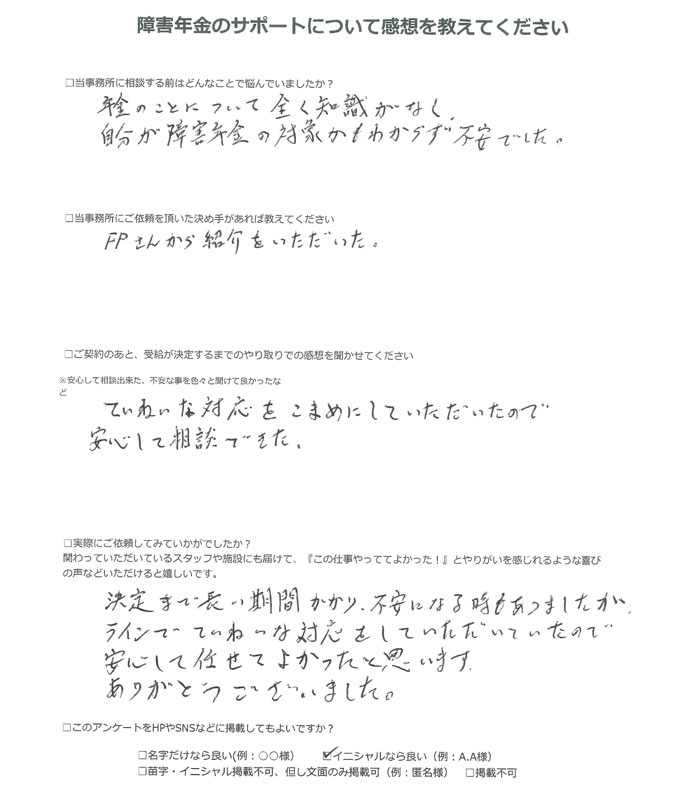 障害年金のサポートについて感想を教えてください
□当事務所に相談する前はどんなことで悩んでいましたか？
年金のことについて全く知識がなく、
自分が障害年金の対象かもわからず不安でした。
□当事務所にご依頼を頂いた決め手があれば教えてください
FPさんから紹介をいただいた。
□ご契約のあと、受給が決定するまでのやり取りでの感想を聞かせてください
※安心して相談出来た、不安な事を色々と聞けて良かったな
ど
ていねいな対応をこまめにしていただいたので
安心して相談できた。
□実際にご依頼してみていかがでしたか？
関わっていただいているスタッフや施設にも届けて、『この仕事やっててよかった！』とやりがいを感じれるような喜び
の声などいただけると嬉しいです。
決定まで長い期間かかり、不安になる時もありましたが、
ラインでていねいな対応をしていただいていたので
安心して任せてよかったと思います。
ありがとうございました。
□このアンケートをHPやSNSなどに掲載してもよいですか？
□名字だけなら良い(例：○○様） ☑イニシャルなら良い（例：A.A様）
□苗字・イニシャル掲載不可、但し文面のみ掲載可（例：匿名様） □掲載不可